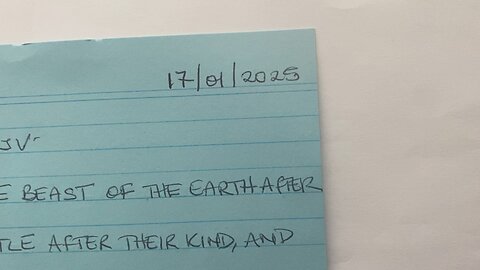 17/01/2025
JV-
E BEAST OF THE EARTH AFTER
TLE AFTER THEIR KIND, AND